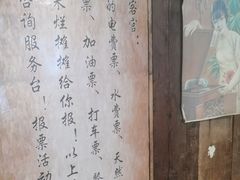 客官：
的电费票、水费票、天然
票、加油票、打车票、
烂摊摊给你报！以上
咨询服务台！报票活动